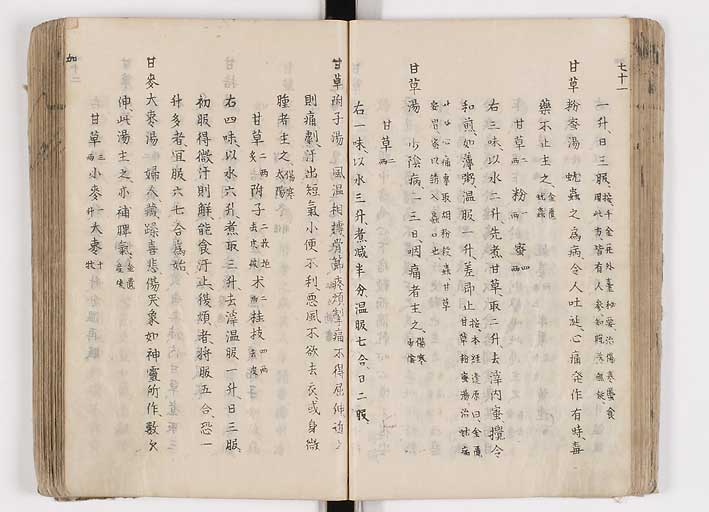 七十一
一升、日三服、
甘草粉蜜湯 蚘蟲之為病令人吐涎心痛発作有時毒
藥不止主之、金匱蚘蟲
甘草二兩 粉一兩 蜜四兩
右三味、以水三升、先煮甘草、取二升、去滓、内蜜攪令
和、煎如薄粥、温服一升、差即止
甘草湯 少陰病二三日、咽痛者主之、傷寒
甘草二兩
右一味、以水三升、煮減半分、温服七合、日二服、
甘草附子湯 風温相搏骨節疼煩掣痛不得屈伸近之
則痛劇、汗出短氣小便不利、悪風不欲去衣或身微
腫者主之、傷寒太陽
甘草二兩炙 附子二枚炮去皮 朮二兩 桂枝四兩去皮
右四味、以水六升、煮取三升、去滓、温服一升、日三服、
初服得微汗則解、能食汗止、復煩者、將服五合、恐一
升多者、宜服六七合為始、
甘麥大棗湯 婦人藏躁喜悲傷哭象如神靈所作數欠
伸、此湯主之、亦補脾氣、金匱
甘草三兩 小麥一升 大棗十枚